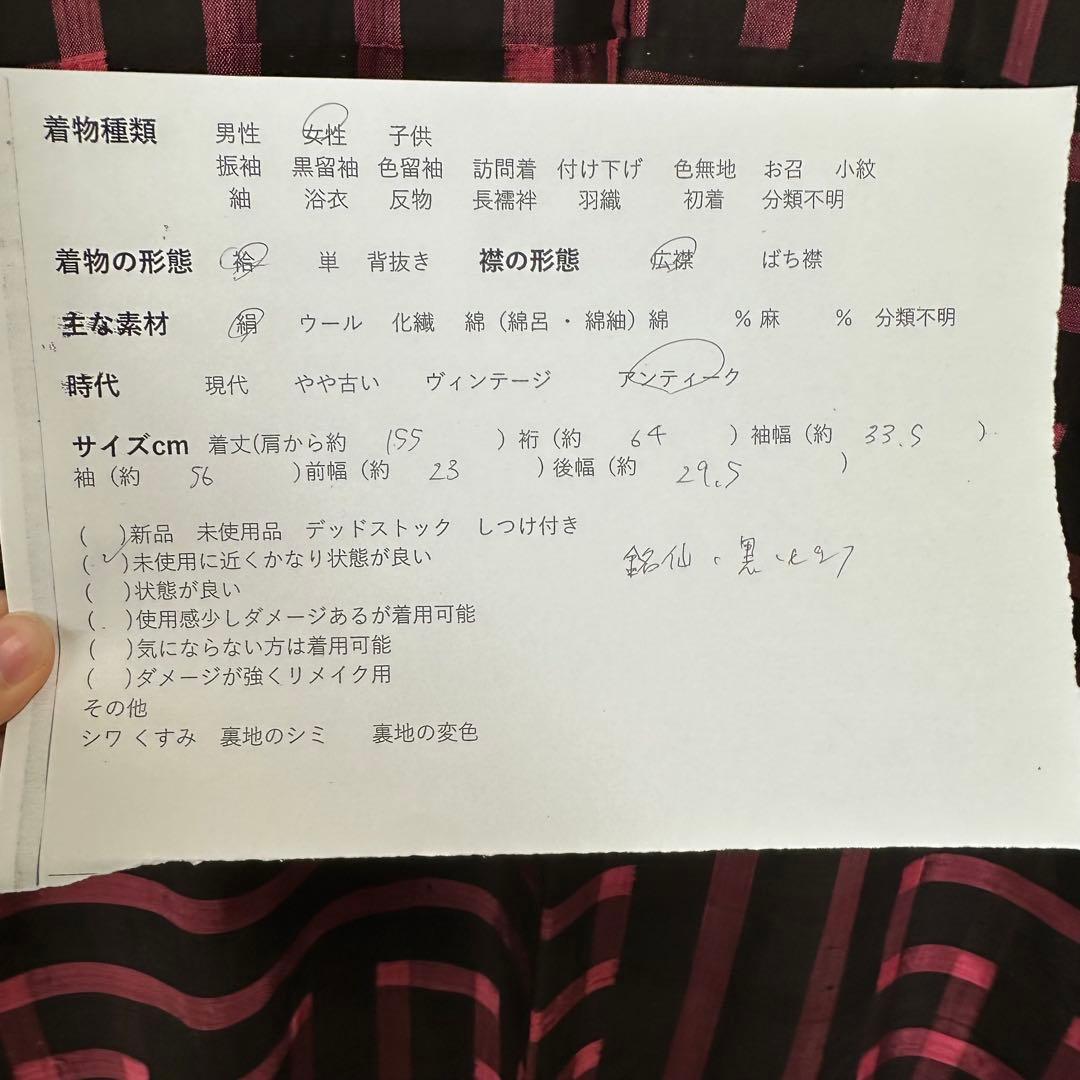 着物種類 男性 女性 子供
振袖 黒留袖 色留袖 訪問着 付け下げ 色無地 お召 小紋
紬 浴衣 反物 長襦袢 羽織 初着 分類不明
着物の形態 袷 単 背抜き 襟の形態 広襟 ばち襟
主な素材 絹 ウール 化繊 綿（綿呂・綿紬）綿 % 麻 % 分類不明
時代 現代 やや古い ヴィンテージ アンティーク
サイズcm 着丈(肩から約 155 ) 裄（約 64 ）袖幅（約 33.5 ）
袖（約 56 )前幅（約 23 ）後幅（約 29.5 ）
( )新品 未使用品 デッドストック しつけ付き
( ✓ )未使用に近くかなり状態が良い
銘仙、黒、
( )状態が良い
( )使用感少しダメージあるが着用可能
( )気にならない方は着用可能
( )ダメージが強くリメイク用
その他
シワ くすみ 裏地のシミ 裏地の変色